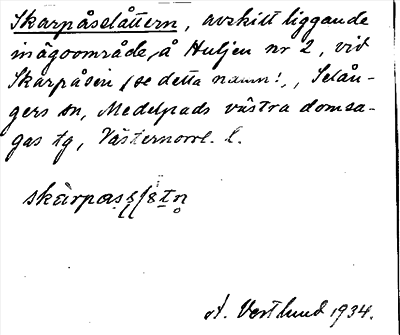 Skarpåselåttern, avskilt liggande
inägoområde å Huljen nr 2, vid
Skarpåsen (se detta namn!), Selån-
gers sn, Medelpads västra domsa-
gas tg, Västernorrl. l.
A. Vestlund 1934.